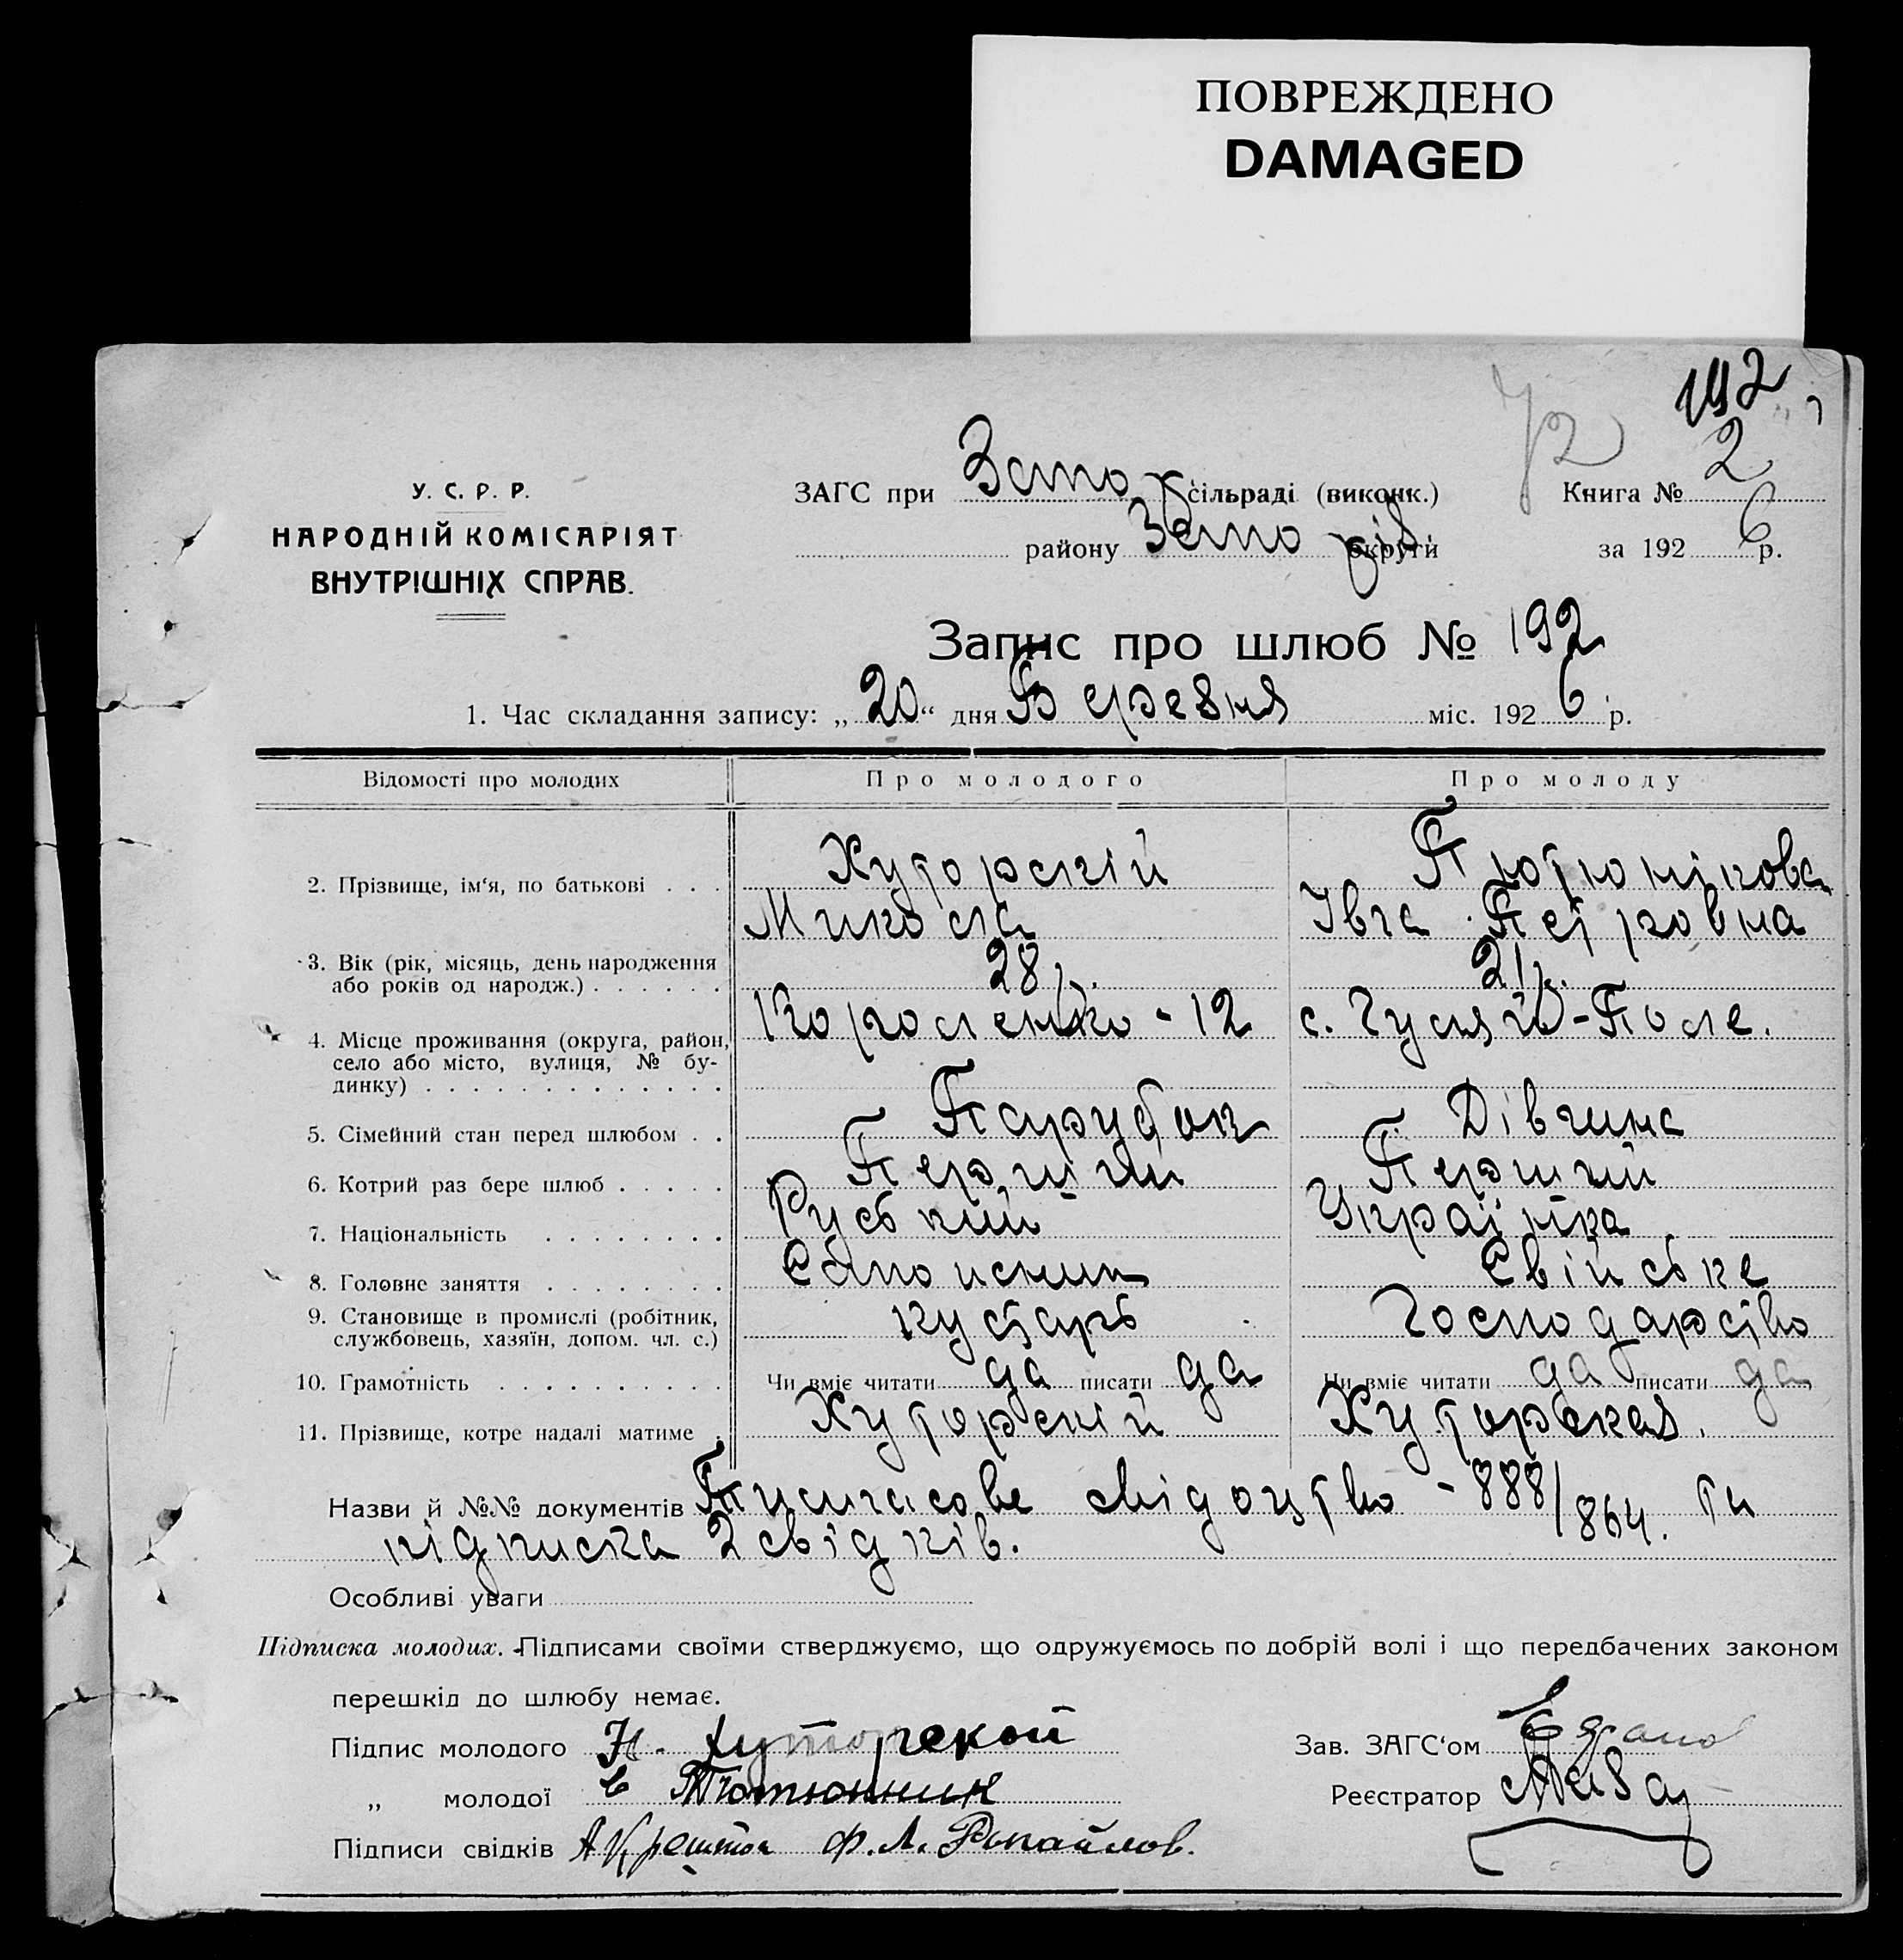 ПОВРЕЖДЕНО
DAMAGED
192
72
У. С. Р. Р.
НАРОДНІЙ КОМІСАРІЯТ
ВНУТРІШНІХ СПРАВ.
ЗАГС при Запо сільраді (виконк.) Книга № 2
району Запорів. округи за 1926 р.
Запис про шлюб № 192
1. Час складання запису: „20“ дня Березня міс. 1926 р.
Відомості про молодих Про молодого Про молоду
2. Прізвище, ім'я, по батькові . . . Хуторскій Тютюнікова
Микола Івга Петровна
3. Вік (рік, місяць, день народження або років од народж.) . . . . . . 28 р. 21 р.
4. Місце проживання (округа, район, село або місто, вулиця, № будинку) . . . . . . . . . . . . . Короленко - 12 с. Гуляй-Поле.
5. Сімейний стан перед шлюбом . . Парубок Дівчина
6. Котрий раз бере шлюб . . . . . Перший Перший
7. Національність . . . . . . . . Руський Українка
8. Головне заняття . . . . . . . . Свійське
9. Становище в промислі (робітник, службовець, хазяїн, допом. чл. с.) кустарь Господарство
10. Грамотність . . . . . . . . . . Чи вміє читати да писати да Чи вміє читати да писати да
11. Прізвище, котре надалі матиме . Хуторский Хуторская.
Назви й №№ документів Тимчасове свідоцтво - 888/864. та
підписка 2 свідків.
Особливі уваги
Підписка молодих. Підписами своїми стверджуємо, що одружуємось по добрій волі і що передбачених законом
перешкід до шлюбу немає.
Підпис молодого Н. Хуторской Зав. ЗАГС'ом
„ молодої Е Тютюнник Реєстратор
Підписи свідків Ф. Л.